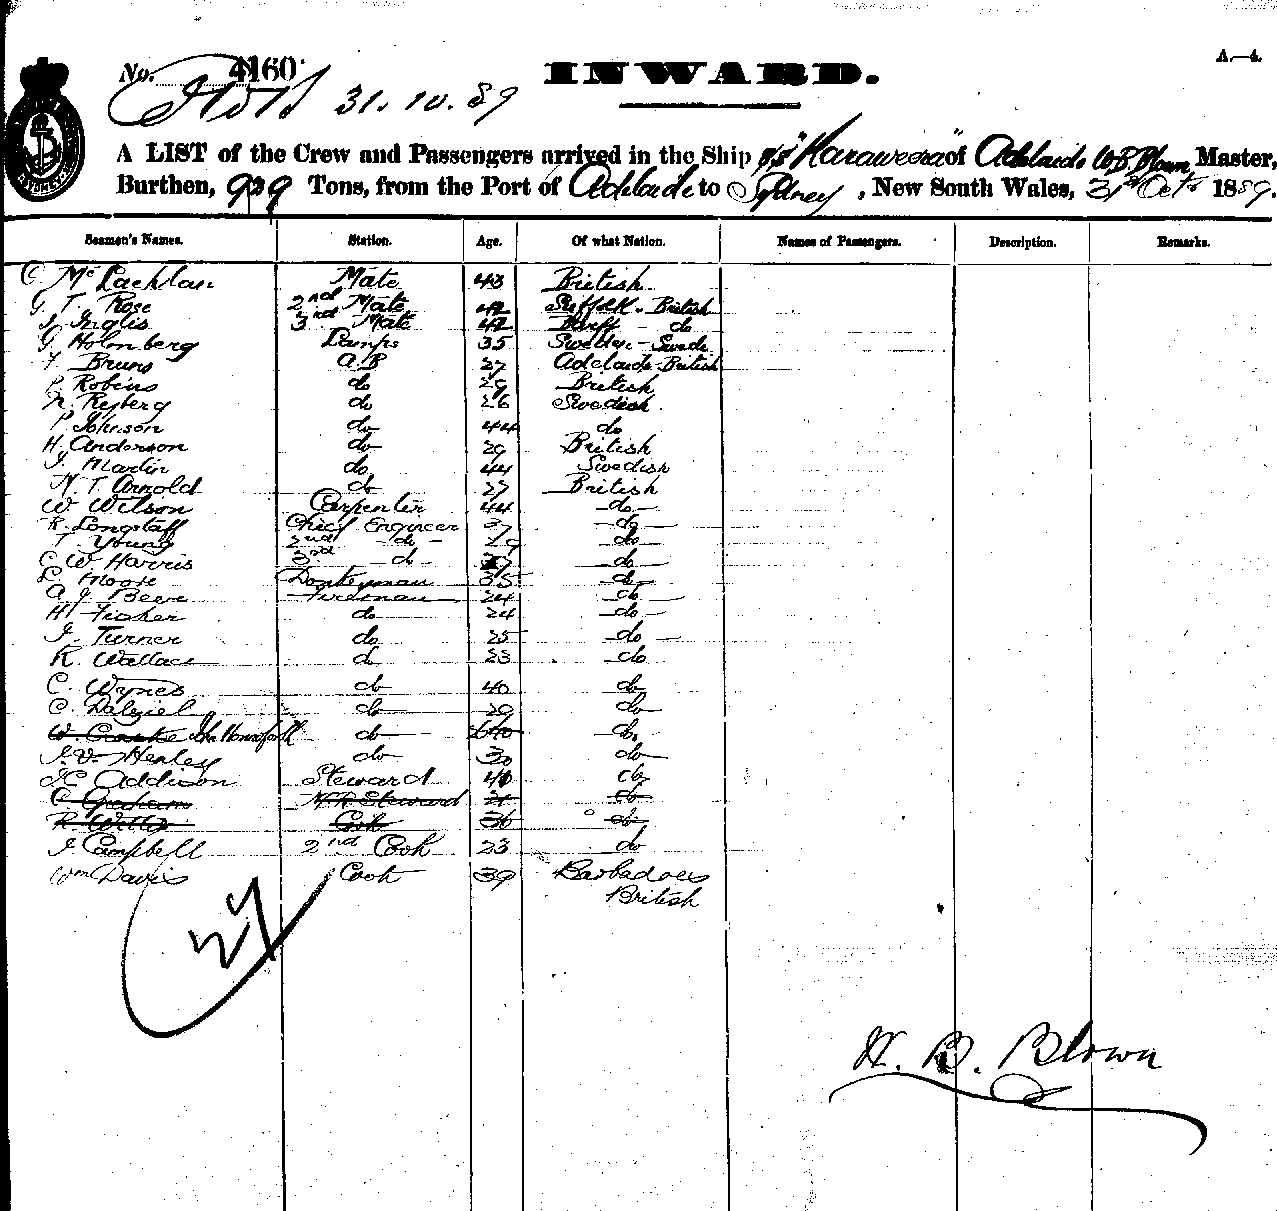 A.—4.
No. 4160
INWARD.
31.10.89
A LIST of the Crew and Passengers arrived in the Ship S.S. "Karaweera" of Adelaide W B Blown Master,
Burthen, 909 Tons, from the Port of Adelaide to Sydney, New South Wales, 31st Oct. 1889.
Seamen's Names. Station. Age. Of what Nation. Names of Passengers. Description. Remarks.
C McLachlan Mate 43 British
G. T. Rose 2nd Mate 42 Suffolk - British
J. Inglis 3rd Mate 42 Banff - do
G Holmberg Lamps 35 Sweden - Swede
F Bruns A B 27 Adelaide British
P Robins do 29 British
N. Ryberg do 26 Swedish
P Johnson do 44 do
H. Anderson do 29 British
J. Martin do 44 Swedish
N. T. Arnold do 27 British
W Wilson Carpenter 44 do
R. Longstaff Chief Engineer 37 do
T. Young 2nd do 29 do
C W Harris 3rd do 27 do
L. Moore Donkeyman 35 do
A J Beeve Fireman 24 do
H. Fisher do 24 do
J. Turner do 25 do
R. Wallace do 23 do
C. Wynes do 40 do
C. Dalziel do 29 do
W. Crooke do do
J. V. Henley do 30 do
J E Addison Steward 40 do
C. Graham Steward 21 do
R. Willis Cook 36 do
J. Campbell 2nd Cook 23 do
Wm Davis Cook 39 Barbadoes
British
27
W. B. Blown